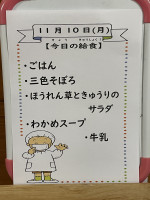 11月10日(月)
【今日の給食】
・ごはん
・三色そぼろ
・ほうれん草ときゅうりの
サラダ
・わかめスープ
・牛乳